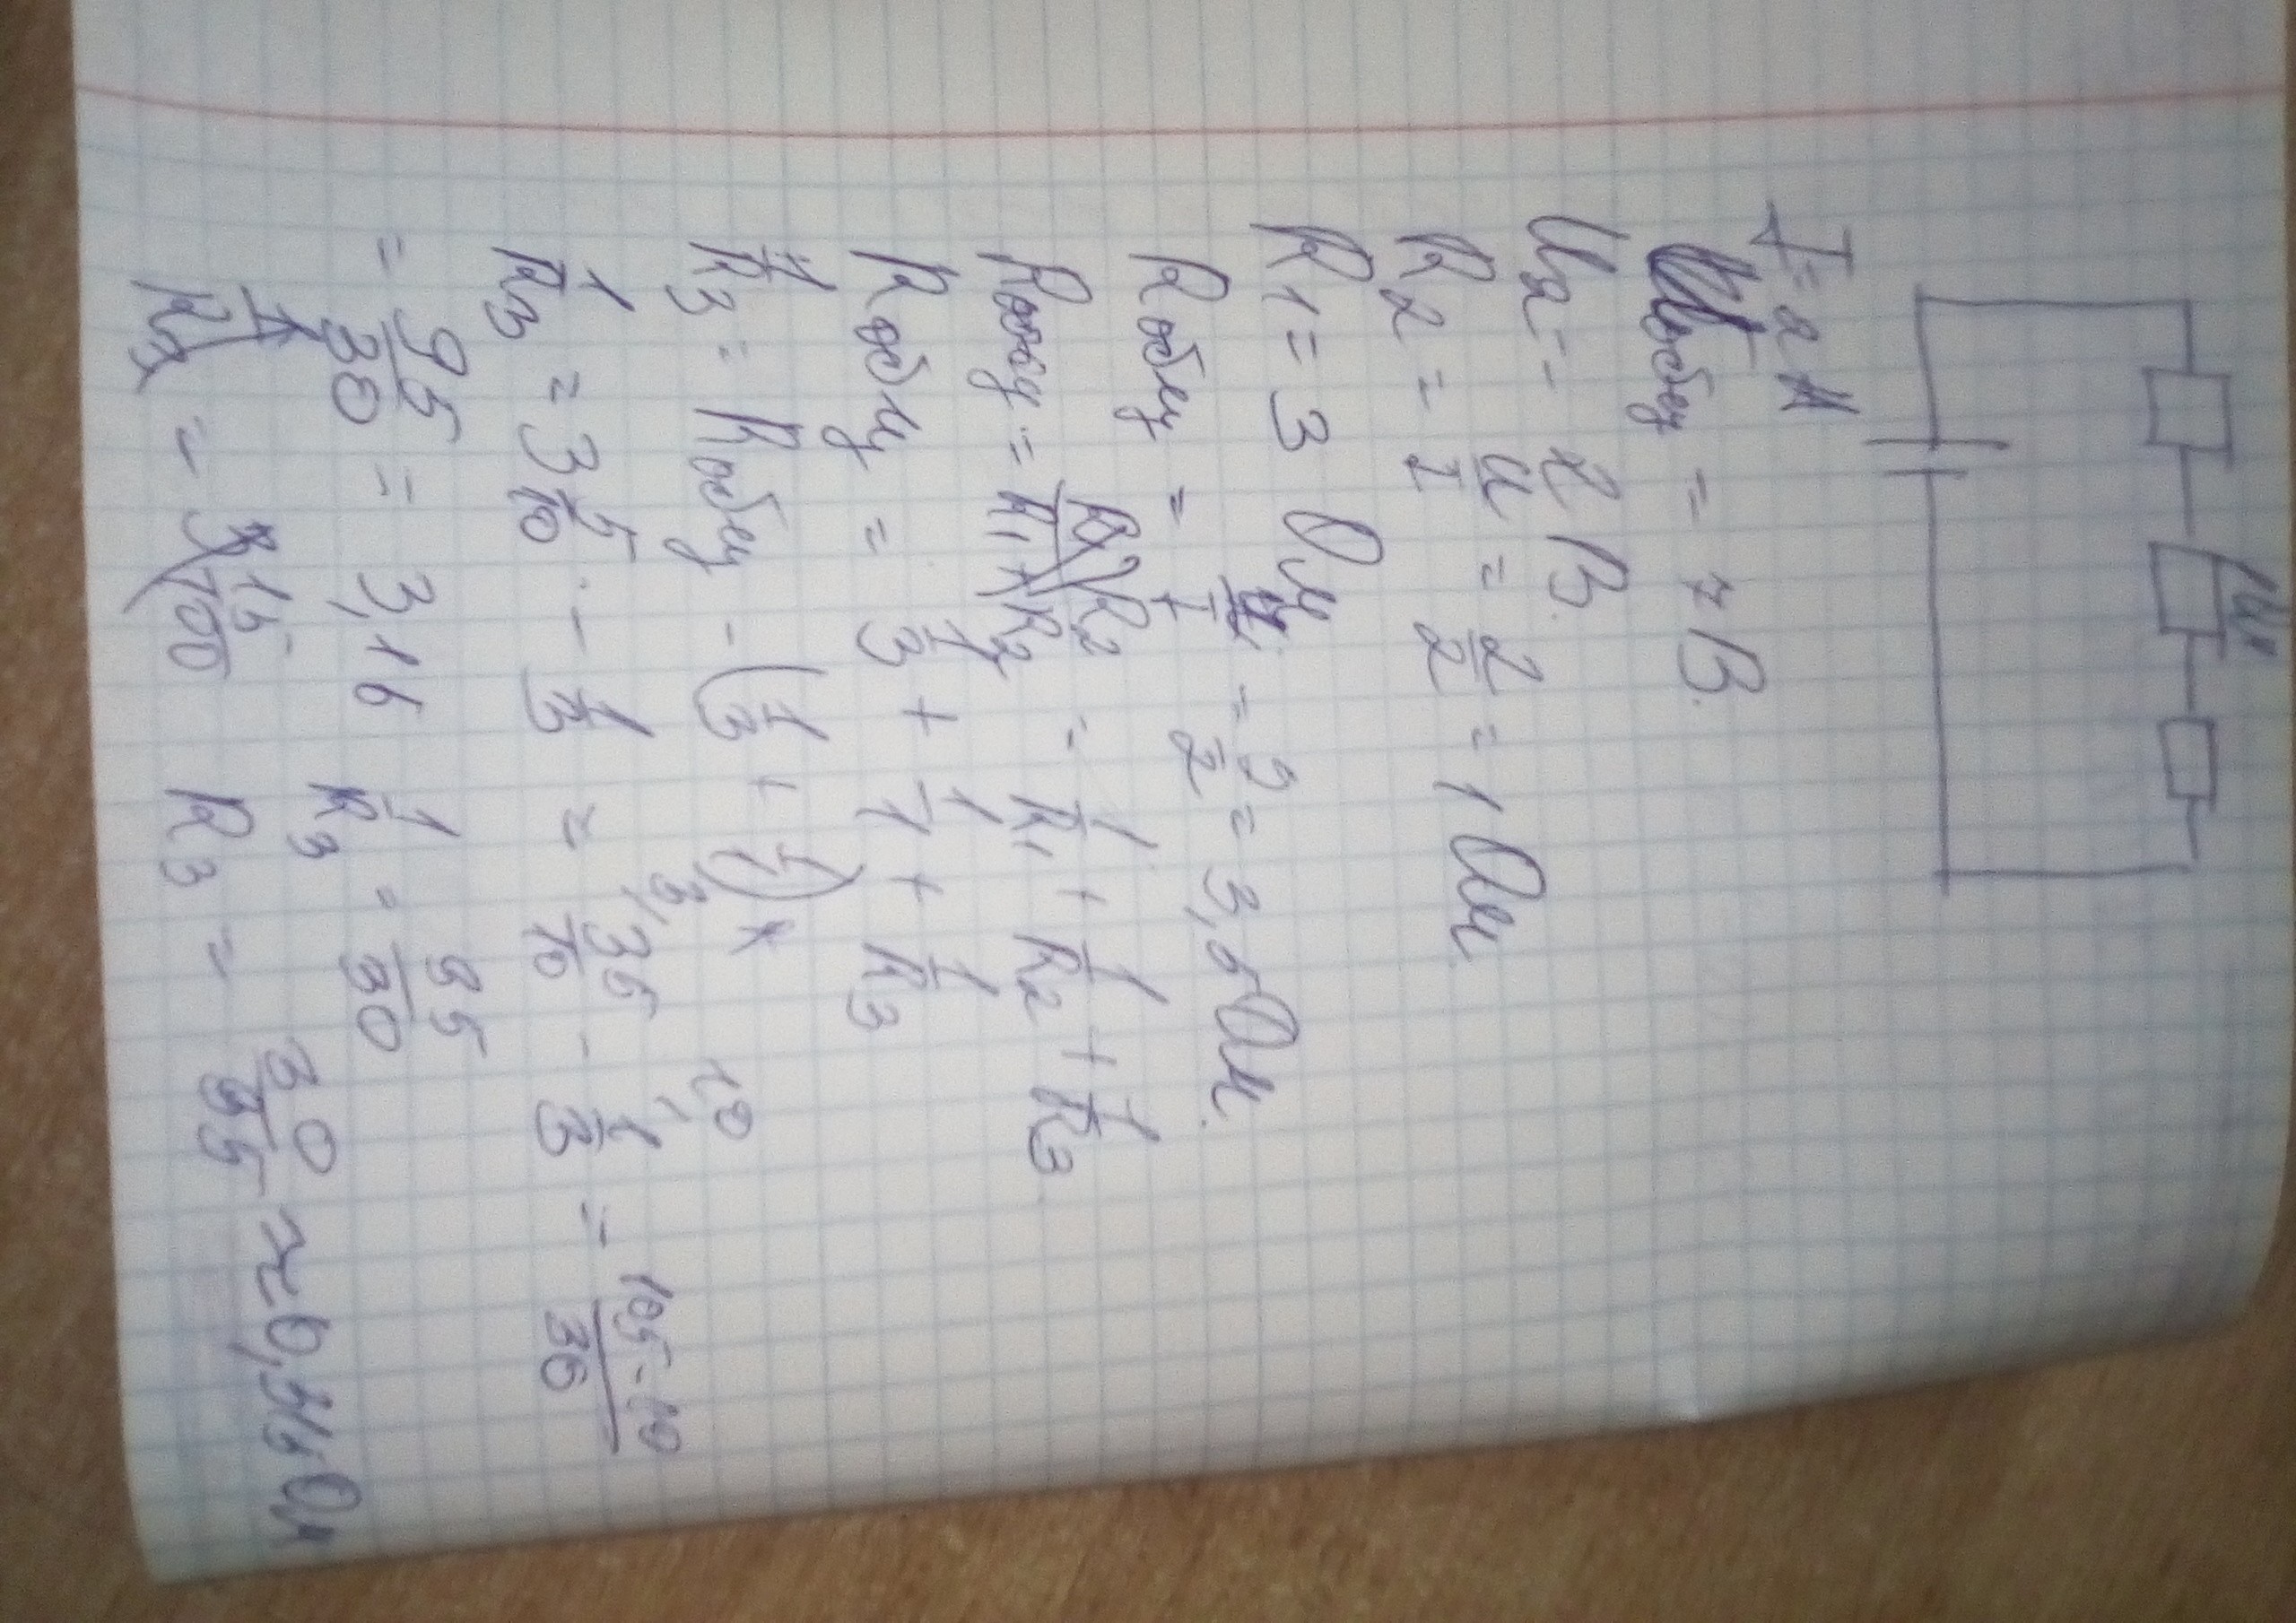 I = 2 A
Uобщ = 7 В.
U2 = 2 В.
R2 = U/I = 2/2 = 1 Ом
R1 = 3 Ом
Rобщ = U/I = 7/2 = 3,5 Ом.
Rобщ = = 1/R1 + 1/R2 + 1/R3
Rобщ = 1/3 + 1/1 + 1/R3
1/R3 = Rобщ - (1/3 + 1/1)
1/R3 = 3 5/10 - 1/3 = 35/10 - 1/3 = 105-10/30
= 95/30 = 3,16 1/R3 = 95/30
R3 = 30/95 ≈ 0,31 Ом